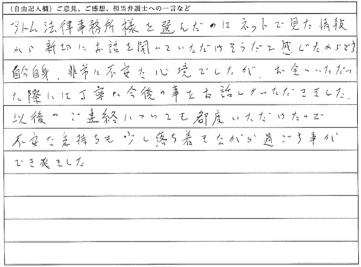 (自由記入欄)ご意見、ご感想、担当弁護士への一言など
アトム法律事務所様を選んだのはネットで見た情報
から親切にお話を聞いていただけそうだと感じたからです
自分自身、非常に不安な心境でしたが、お会いいただい
た際には丁寧に今後の事をお話しいただきました。
以後のご連絡についても都度いただけたので
不安な気持ちも少し落ち着きながら過ごす事が
でき来ました